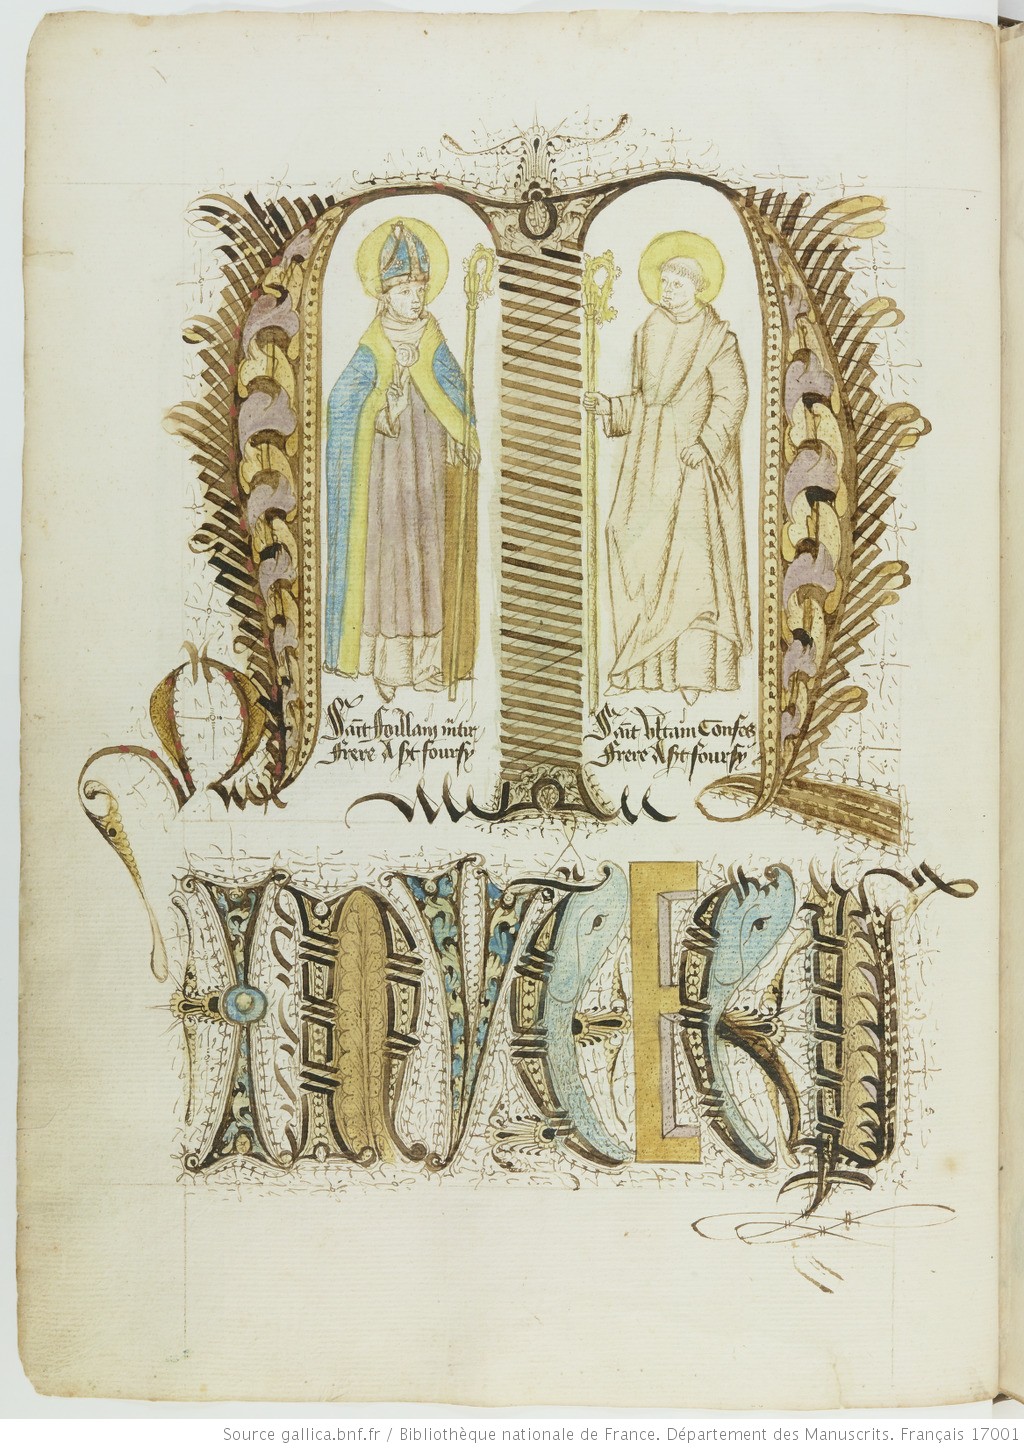 M
Saīt foillain m̄tir
frere A st foursy
Saīt Vltain Confes
frere A st foursy
Source gallica.bnf.fr / Bibliothèque nationale de France. Département des Manuscrits. Français 17001